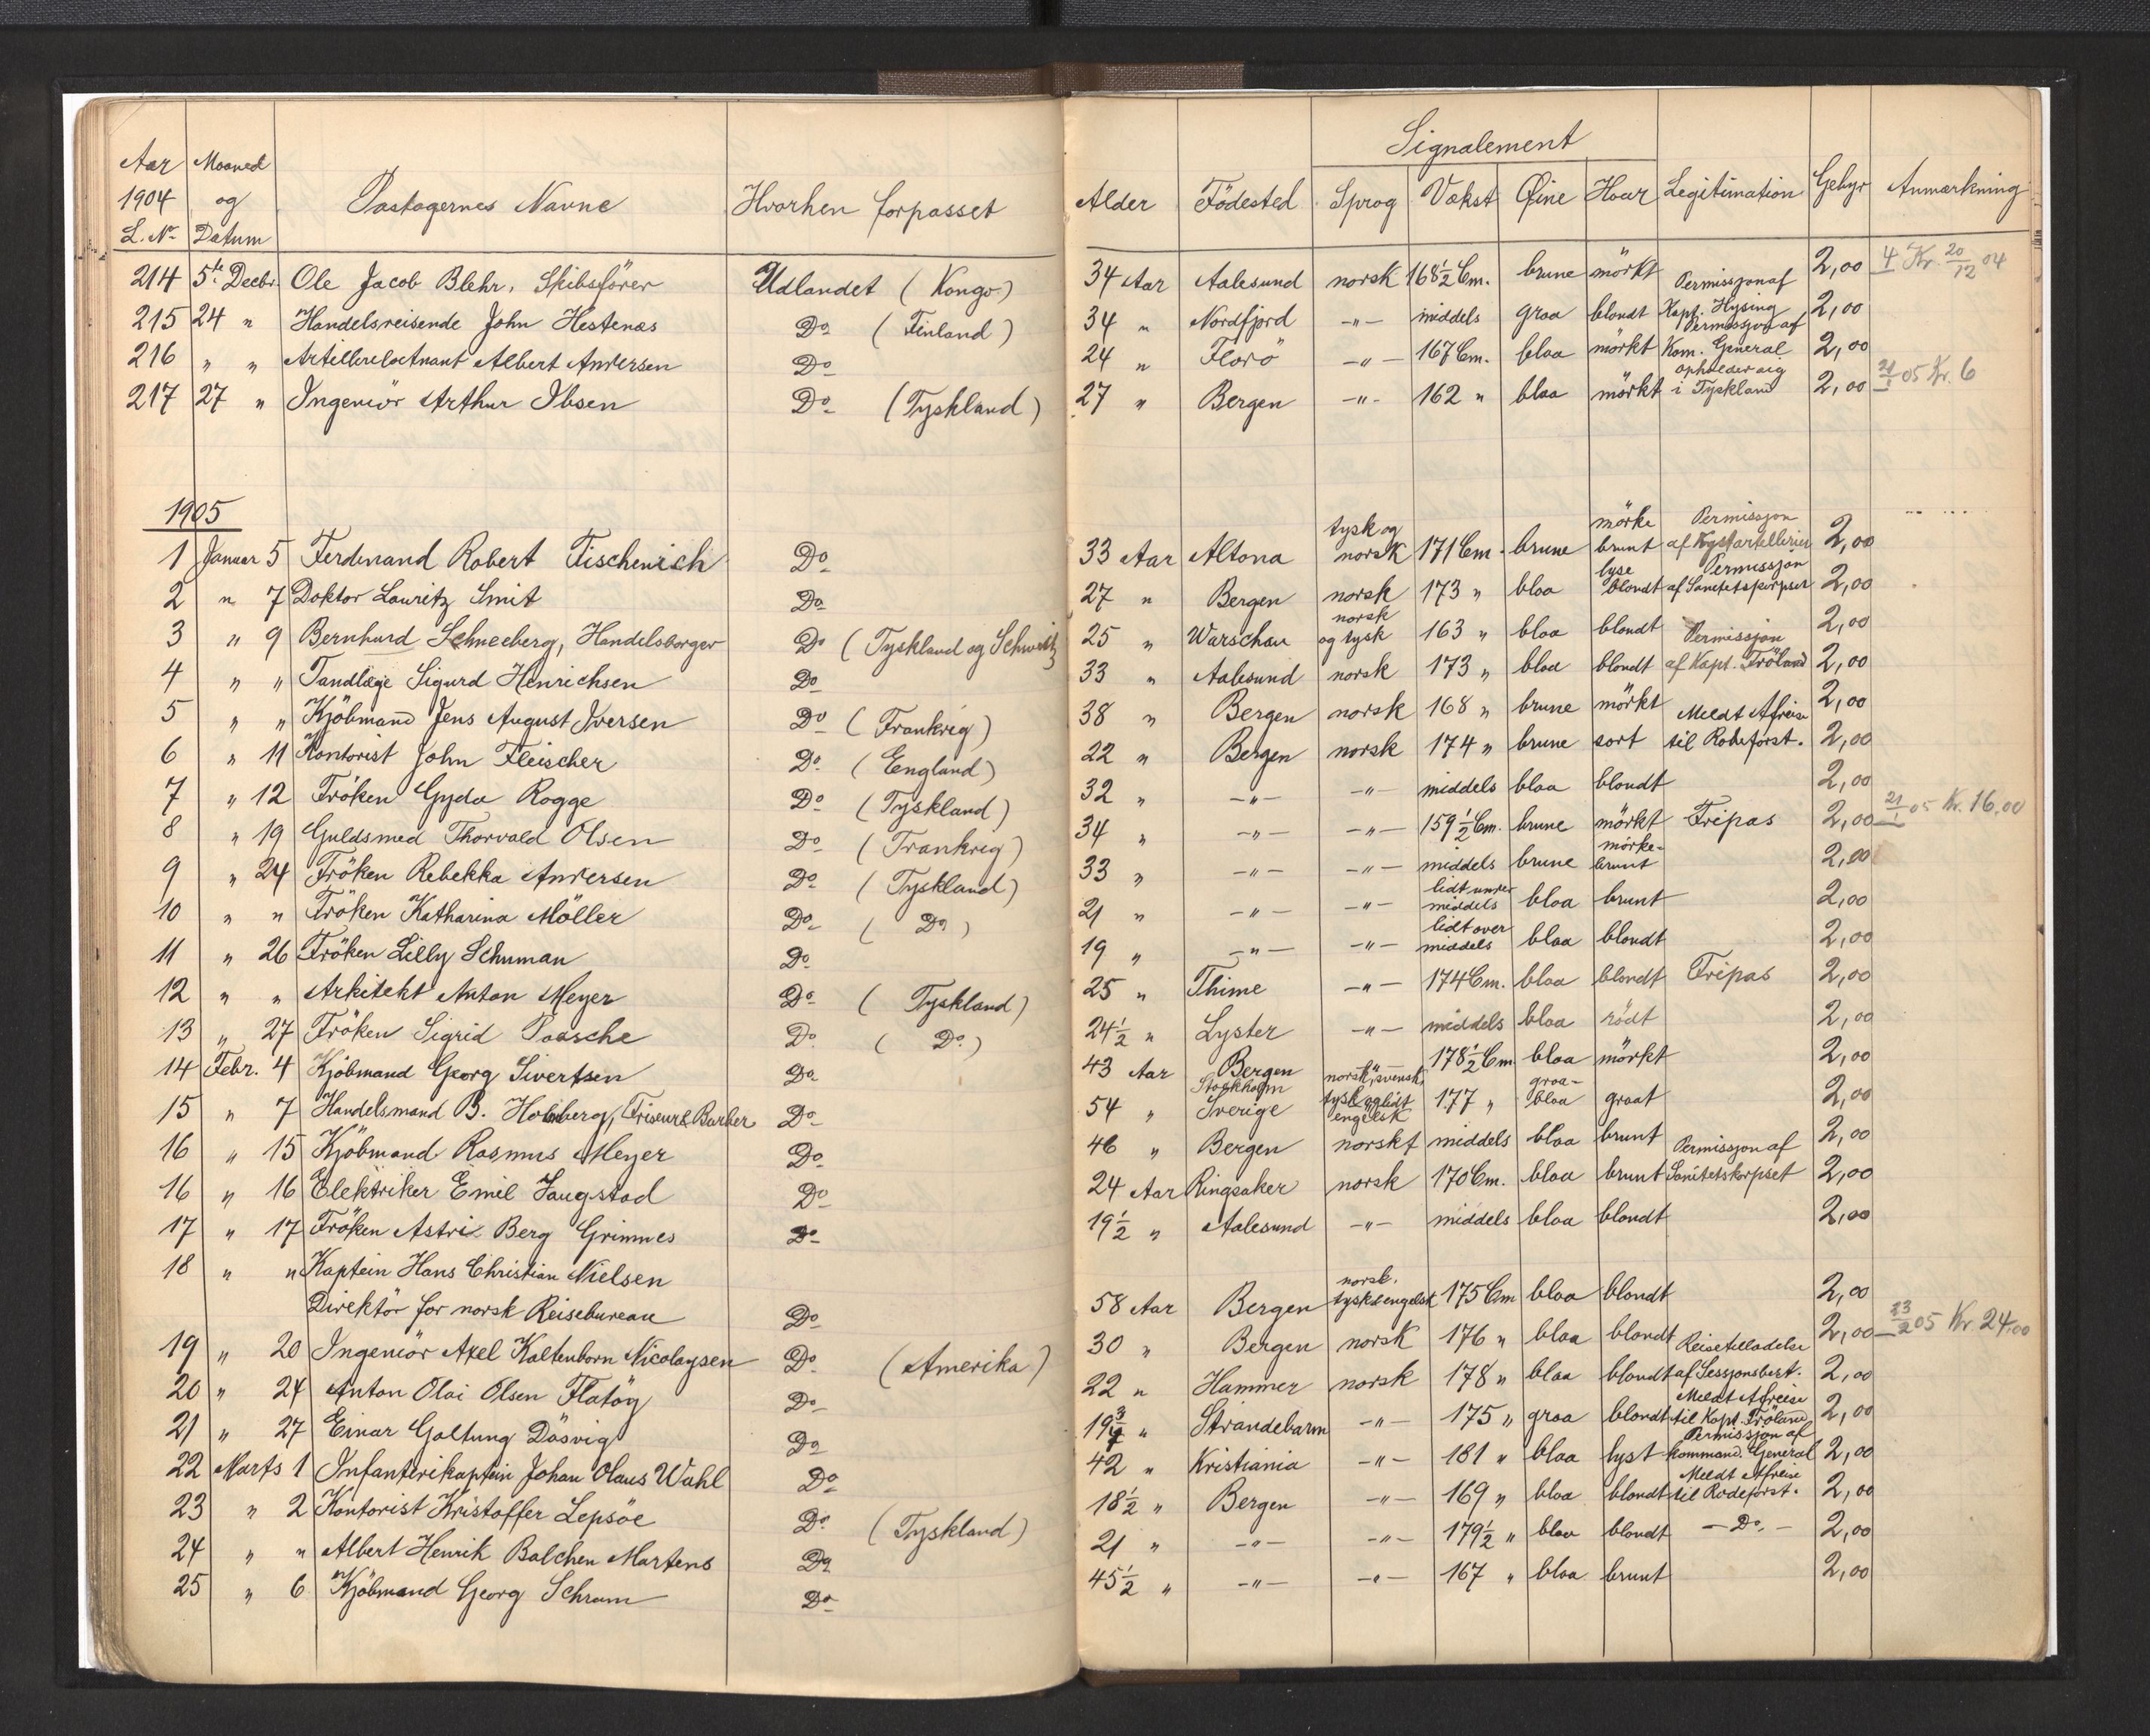 Aar Maaned Signalement
1904 og Pastagernes Navne Hvorhen forpasset Alder Födested Sprog Vækst Øine Haar Legitimation Gebyr Anmærkning
L. No Datum
214 5te Decbr. Ole Jacob Blehr, Skibsförer Udlandet (Kongo) 34 Aar Aalesund norsk 168½ Cm. brune mörkt 2,00 4 Kr. 20/12 04
215 24 " Handelsreisende John Hestenæs Do (Finland) 34 " Nordfjord -"- middels graa blondt Permissjon af Kapt. Hysing 2,00
216 " " Artilleriløitnant Albert Andersen Do 24 " Florö -"- 167 Cm. blaa mörkt Permissjon af Kom. General 2,00
217 27 " Ingeniör Arthur Ibsen Do (Tyskland) 27 " Bergen -"- 162 " blaa mörkt opholder sig i Tyskland 2,00 05 Kr. 6
1905
1 Januar 5 Ferdinand Robert Fischenich Do 33 Aar Altona tysk og norsk 171 Cm. brune mörke brunt Permissjon af Kystartelleriet 2,00
2 " 7 Doktor Lauritz Smit Do 27 " Bergen norsk 173 " blaa lyse blondt Permissjon af Sanitetskorpset 2,00
3 " 9 Bernhard Schneeberg, Handelsborger Do (Tyskland og Schweitz) 25 " Warschau norsk og tysk 163 " blaa blondt 2,00
4 " " Tandlæge Sigurd Henrichsen Do 33 " Aalesund norsk 173 " blaa blondt Permissjon af Kapt. Fröland 2,00
5 " " Kjöbmand Jens August Iversen Do (Frankrig) 38 " Bergen norsk 168 " brune mörkt 2,00
6 " 11 Kontorist John Fleischer Do (Eengland) 22 " Bergen norsk 174 " brune sort Meldt Afreise til Rodeforst. 2,00
7 " 12 Fröken Gyda Rogge Do (Tyskland) 32 " -"- -"- middels blaa blondt 2,00
8 " 19 Guldsmed Thorvald Olsen Do (Frankrig) 34 " -"- -"- 159½ Cm. brune mörkt Fripas 2,00 21/1 05 Kr. 16.00
9 " 24 Fröken Rebekka Andersen Do (Tyskland) 33 " -"- -"- middels brune mörke- brunt 2,00
10 " " Fröken Katharina Möller Do (Do) 21 " -"- -"- lidt under middels blaa brunt 2,00
11 " 26 Fröken Lilly Schuman Do 19 " -"- -"- lidt over middels blaa blondt 2,00
12 " " Arkitekt Anton Meyer Do (Tyskland) 25 " Thime -"- 174 Cm. blaa blondt Fripas 2,00
13 " 27 Fröken Sigrid Paasche Do (Do) 24½ " Lyster -"- middels blaa rödt 2,00
14 Febr. 4 Kjöbmand Georg Sivertsen Do 43 Aar Bergen 178½ Cm. blaa mörkt 2,00
15 " 7 Handelsmand B. Holmberg, Friseur & Barber Do 54 " Stockholm Sverige norsk, svensk, tysk og lidt engelsk 177 " graa- blaa graat 2,00
16 " 15 Kjöbmand Rasmus Meyer Do 46 " Bergen norsk middels blaa brunt 2,00
16 " 16 Elektriker Emil Haugstad Do 24 Aar Ringsaker norsk 170 Cm. blaa brunt Permissjon af Sanitetskorpset 2,00
17 " 17 Fröken Astri Berg Grimnes Do 19½ " Aalesund -"- middels blaa blondt 2,00
18 " " Kaptein Hans Christian Nielsen
Direktör for norsk Reisebureau Do 58 Aar Bergen norsk, tysk & engelsk 175 Cm blaa blondt 2,00
19 " 20 Ingeniör Axel Kaltenborn Nicolaysen Do (Amerika) 30 " Bergen norsk 176 " blaa blondt 2,00 23/2 05 Kr. 24,00
20 " 24 Anton Olai Olsen Flatöy Do 22 " Hammer norsk 178 " blaa blondt Reisetilladelse af Sessjonsbest. 2,00
21 " 27 Einar Galtung Däsvig Do 19¾ " Strandebarm -"- 175 " graa blondt Meldt Afreise til Kapt. Fröland 2,00
22 Marts 1 Infanterikaptein Johan Olaus Wahl Do 42 " Kristiania -"- 181 " blaa lyst Permissjon af kommand. General 2,00
23 " 2 Kontorist Kristoffer Lepsöe Do (Tyskland) 18½ " Bergen -"- 169 " blaa blondt Meldt Afreise til Rodeforst. 2,00
24 " " Albert Henrik Balchen Martens Do 21 " -"- -"- 179½ " blaa blondt -Do.- 2,00
25 " 6 Kjöbmand Georg Schram Do 45½ " -"- -"- 167 " blaa brunt 2,00